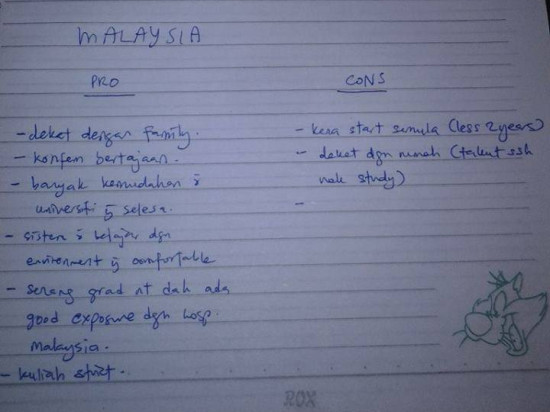 MALAYSIA
PRO
- deket dengan family.
- konfem bertajaan.
- banyak kemudahan i
universiti yg selesa.
- sistem i belajar dgn
environment yg comfortable
- senang grad nt dah ada
good exposure dgn hosp.
malaysia.
- kuliah strict.
CONS
- kena start semula (less 2 years)
- deket dgn rumah (takut ssh
nak study)
-
ROX